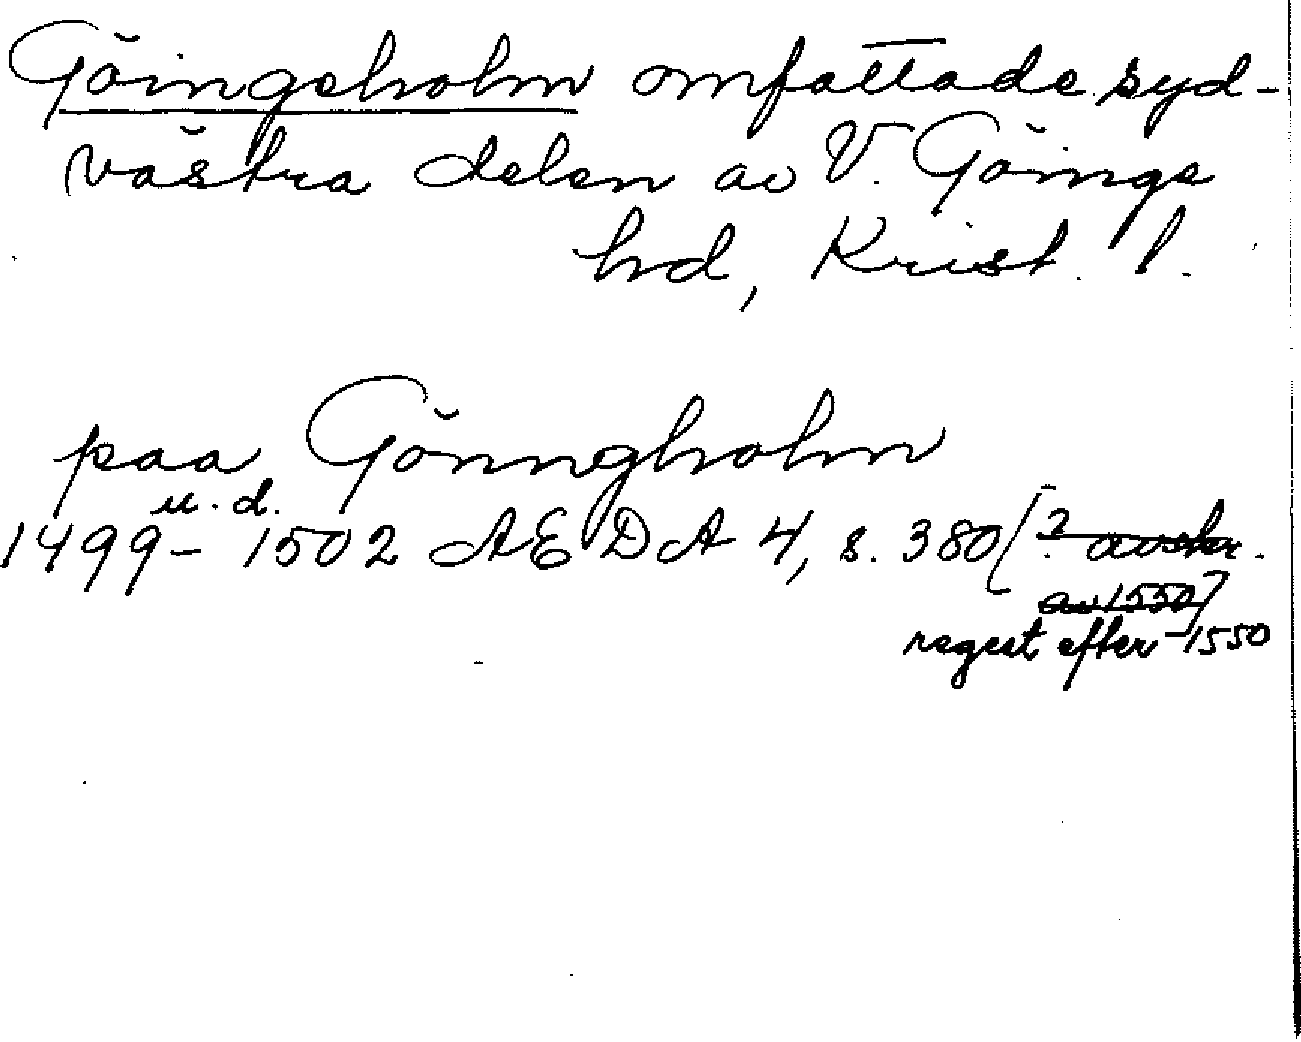 Göingeholm omfattade syd-
västra delen av V. Göinge
hd, Krist. l.
paa Gönngholm
u. d.
1499 - 1502 AEDA 4, s. 380 [? avskr.
av 1550]
regest efter 1550